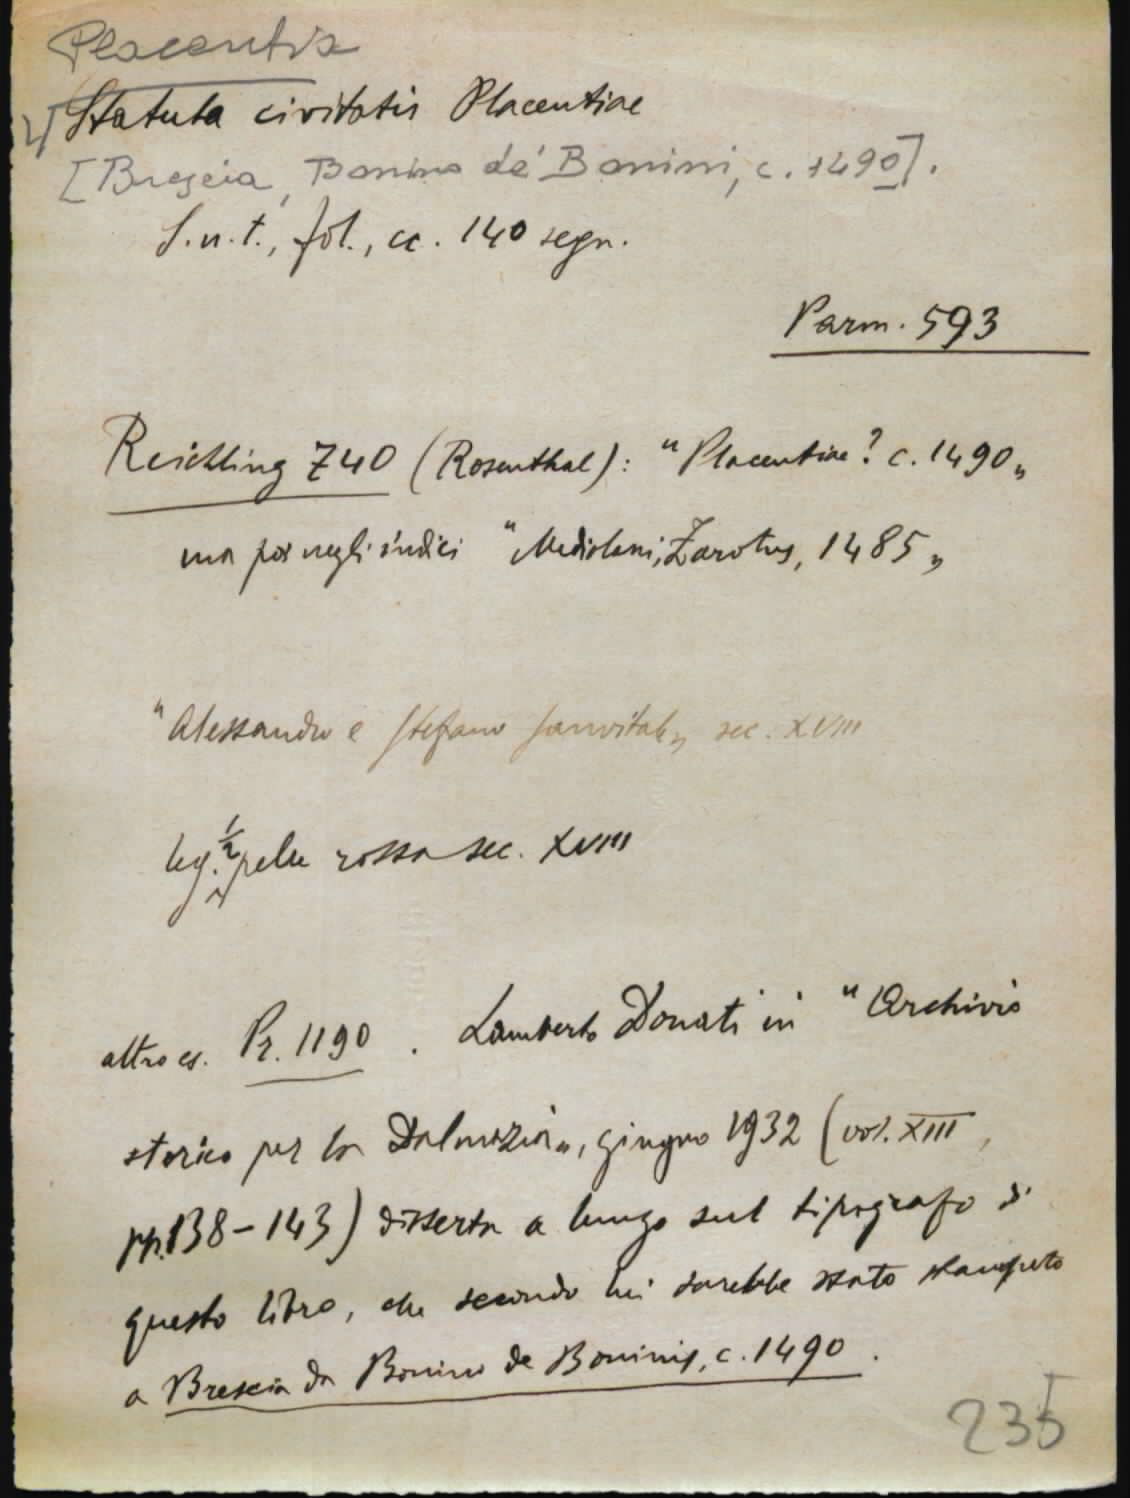 Placentia
Statuta civitatis Placentiae
[Brescia, Bonino de' Bonini, c. 1490].
S.n.t., fol., cc. 140 segn.
Parm. 593
Reichling 740 (Rosenthal): "Placentiae? c. 1490„
ma poi negli indici "Mediolani, Zarotus, 1485„
"Alessandro e Stefano Sanvitale„ sec. XVIII
leg. ½ pelle rossa sec. XVIII
altro es. Pr. 1190. Lamberto Donati in "Archivio
storico per la Dalmazia„, giugno 1932 (vol. XIII,
pp. 138-143) disserta a lungo sul tipografo di
questo libro, che secondo lui sarebbe stato stampato
a Brescia da Bonino de Boninis, c. 1490.
235